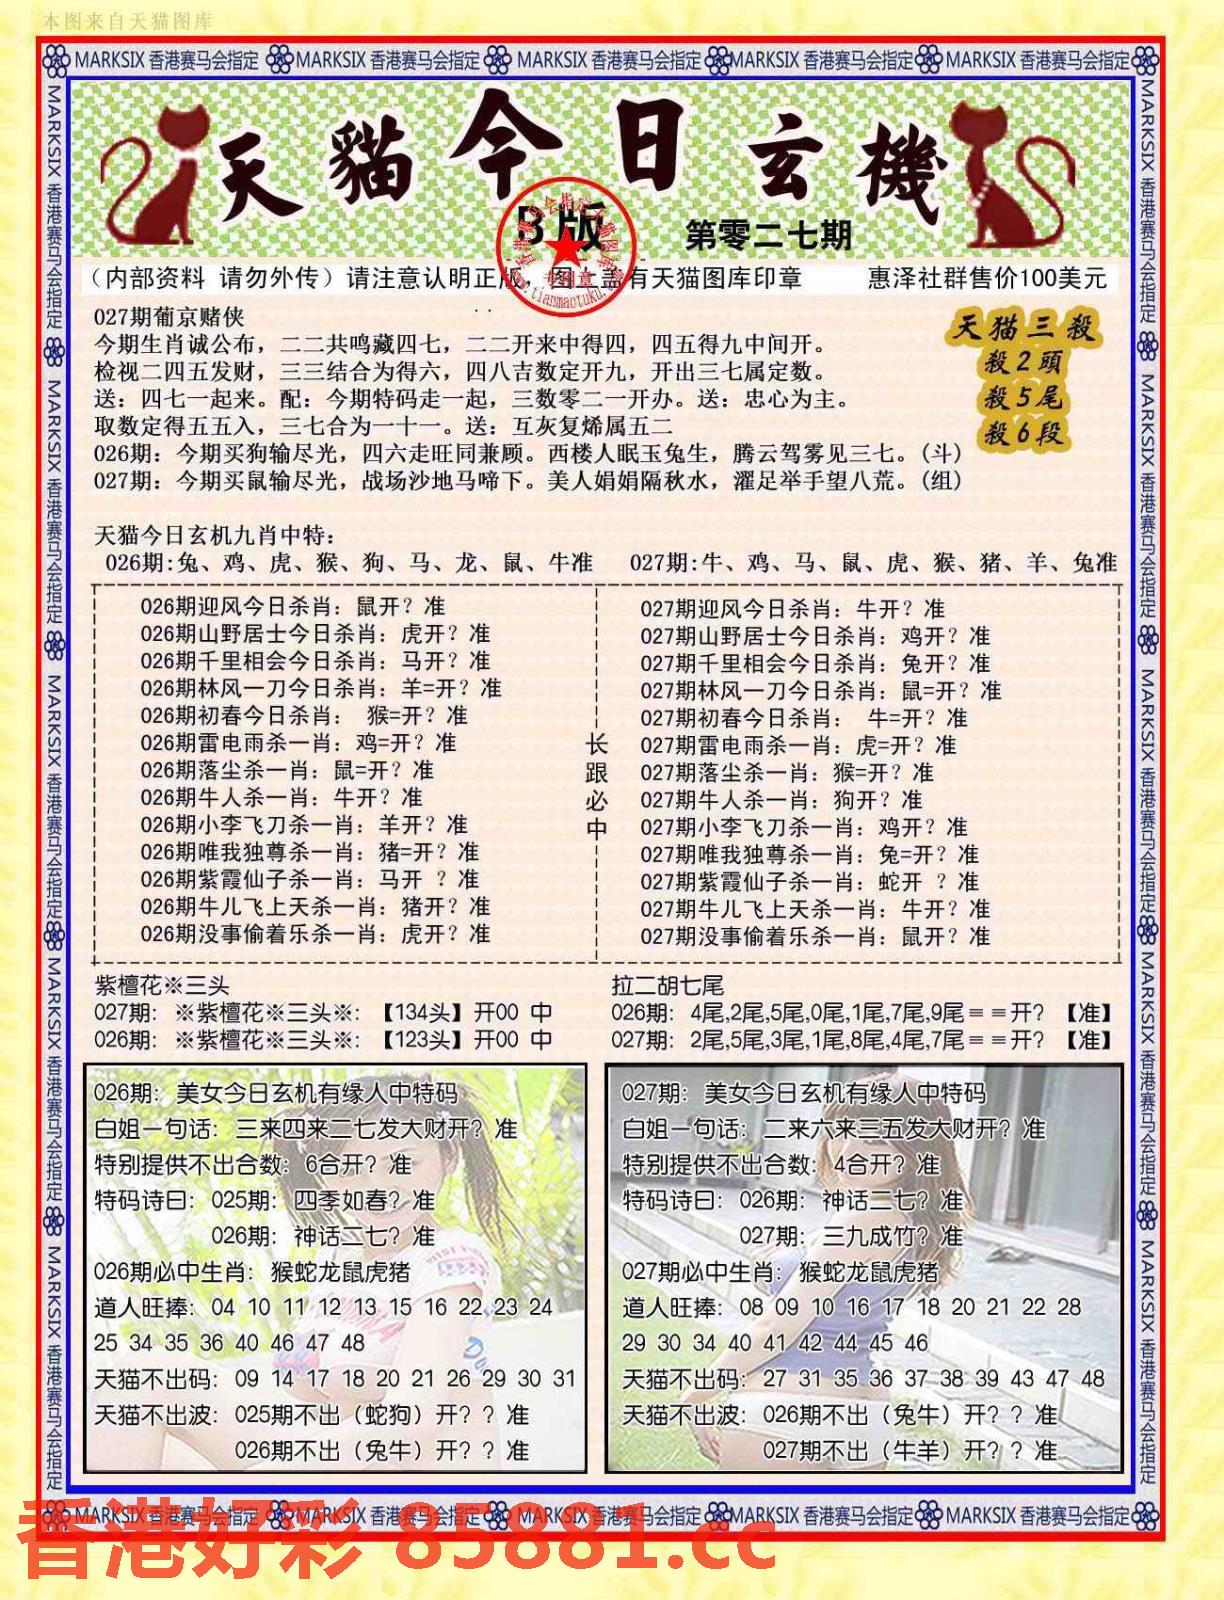 本图来自天猫图库
MARKSIX 香港赛马会指定 MARKSIX 香港赛马会指定 MARKSIX 香港赛马会指定 MARKSIX 香港赛马会指定 MARKSIX 香港赛马会指定
天貓今日玄機
B版
第零二七期
（内部资料 请勿外传）请注意认明正版 图上盖有天猫图库印章 惠泽社群售价100美元
027期葡京赌侠
今期生肖诚公布，二二共鸣藏四七，二二开来中得四，四五得九中间开。
检视二四五发财，三三结合为得六，四八吉数定开九，开出三七属定数。
送：四七一起来。配：今期特码走一起，三数零二一开办。送：忠心为主。
取数定得五五入，三七合为一十一。送：互灰复烯属五二
026期：今期买狗输尽光，四六走旺同兼顾。西楼人眠玉兔生，腾云驾雾见三七。(斗)
027期：今期买鼠输尽光，战场沙地马啼下。美人娟娟隔秋水，濯足举手望八荒。(组)
天猫三殺
殺2頭
殺5尾
殺6段
天猫今日玄机九肖中特：
026期:兔、鸡、虎、猴、狗、马、龙、鼠、牛准 027期:牛、鸡、马、鼠、虎、猴、猪、羊、兔准
026期迎风今日杀肖：鼠开？准
026期山野居士今日杀肖：虎开？准
026期千里相会今日杀肖：马开？准
026期林风一刀今日杀肖：羊=开？准
026期初春今日杀肖： 猴=开？准
026期雷电雨杀一肖：鸡=开？准
026期落尘杀一肖：鼠=开？准
026期牛人杀一肖：牛开？准
026期小李飞刀杀一肖：羊开？准
026期唯我独尊杀一肖：猪=开？准
026期紫霞仙子杀一肖：马开 ？准
026期牛儿飞上天杀一肖：猪开？准
026期没事偷着乐杀一肖：虎开？准
长跟必中
027期迎风今日杀肖：牛开？准
027期山野居士今日杀肖：鸡开？准
027期千里相会今日杀肖：兔开？准
027期林风一刀今日杀肖：鼠=开？准
027期初春今日杀肖： 牛=开？准
027期雷电雨杀一肖：虎=开？准
027期落尘杀一肖：猴=开？准
027期牛人杀一肖：狗开？准
027期小李飞刀杀一肖：鸡开？准
027期唯我独尊杀一肖：兔=开？准
027期紫霞仙子杀一肖：蛇开 ？准
027期牛儿飞上天杀一肖：牛开？准
027期没事偷着乐杀一肖：鼠开？准
紫檀花※三头
027期：※紫檀花※三头※：【134头】开00 中
026期：※紫檀花※三头※：【123头】开00 中
拉二胡七尾
026期：4尾,2尾,5尾,0尾,1尾,7尾,9尾＝＝开？【准】
027期：2尾,5尾,3尾,1尾,8尾,4尾,7尾＝＝开？【准】
026期：美女今日玄机有缘人中特码
白姐一句话：三来四来二七发大财开？准
特别提供不出合数：6合开？准
特码诗曰：025期：四季如春？准
026期：神话二七？准
026期必中生肖：猴蛇龙鼠虎猪
道人旺捧：04 10 11 12 13 15 16 22 23 24
25 34 35 36 40 46 47 48
天猫不出码：09 14 17 18 20 21 26 29 30 31
天猫不出波：025期不出（蛇狗）开？？准
026期不出（兔牛）开？？准
027期：美女今日玄机有缘人中特码
白姐一句话：二来六来三五发大财开？准
特别提供不出合数：4合开？准
特码诗曰：026期：神话二七？准
027期：三九成竹？准
027期必中生肖：猴蛇龙鼠虎猪
道人旺捧：08 09 10 16 17 18 20 21 22 28
29 30 34 40 41 42 44 45 46
天猫不出码：27 31 35 36 37 38 39 43 47 48
天猫不出波：026期不出（兔牛）开？？准
027期不出（牛羊）开？？准
MARKSIX 香港赛马会指定 MARKSIX 香港赛马会指定 MARKSIX 香港赛马会指定 MARKSIX 香港赛马会指定 MARKSIX 香港赛马会指定
MARKSIX 香港赛马会指定 MARKSIX 香港赛马会指定 MARKSIX 香港赛马会指定 MARKSIX 香港赛马会指定 MARKSIX 香港赛马会指定
MARKSIX 香港赛马会指定 MARKSIX 香港赛马会指定 MARKSIX 香港赛马会指定 MARKSIX 香港赛马会指定 MARKSIX 香港赛马会指定
香港好彩 85881.cc